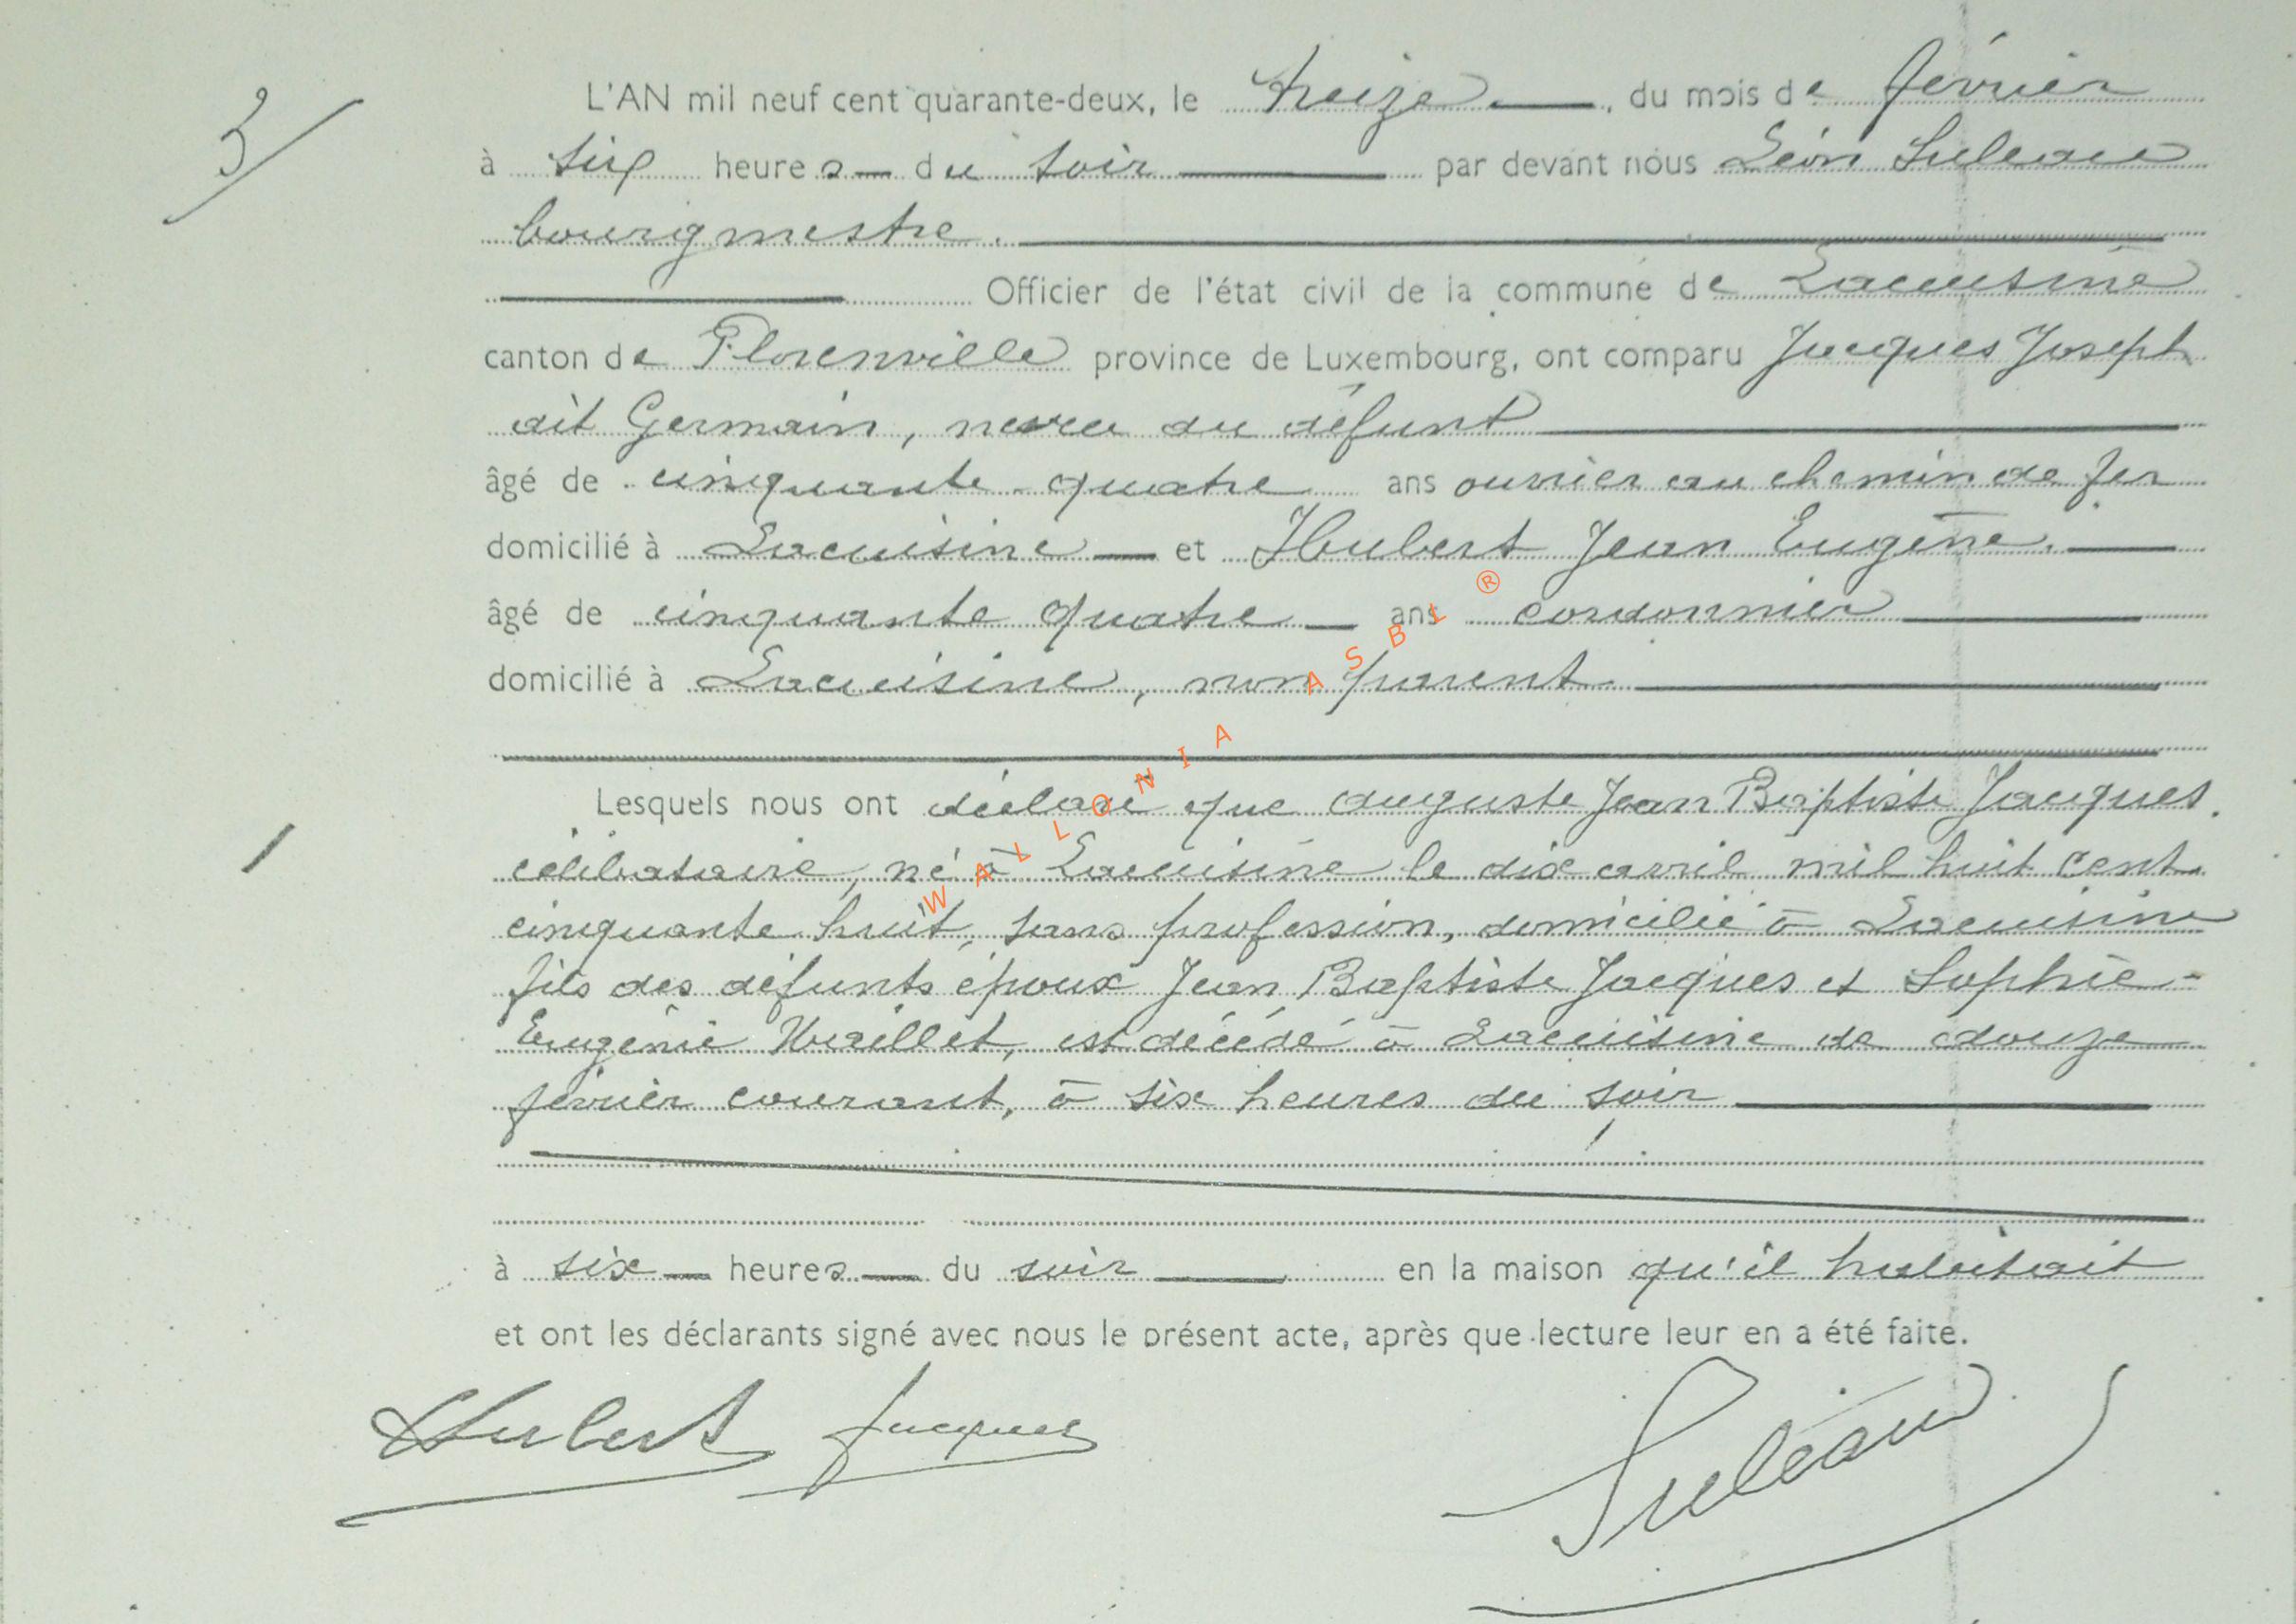 3/
L'AN mil neuf cent quarante-deux, le treize, du mois de février
à six heures du soir par devant nous Léon Suleau
bourgmestre.
Officier de l'état civil de la commune de Lacuisine
canton de Florenville province de Luxembourg, ont comparu Jacques Joseph
dit Germain, neveu du défunt
âgé de cinquante quatre ans ouvrier au chemin de fer
domicilié à Lacuisine et Hubert Jean Eugène.
âgé de cinquante quatre ans cordonnier
domicilié à Lacuisine, non parent
Lesquels nous ont déclaré que Auguste Jean Baptiste Jacques
célibataire, né à Lacuisine le dix avril mil huit cent
cinquante huit, sans profession, domicilié à Lacuisine
fils des défunts époux Jean Baptiste Jacques et Sophie-
Eugénie est décédé à Lacuisine le douze
février courant, à six heures du soir
à six heures du soir en la maison qu'il habitait
et ont les déclarants signé avec nous le présent acte, après que lecture leur en a été faite.
Hubert Jacques Suleau
WALLONIA ASBL ®